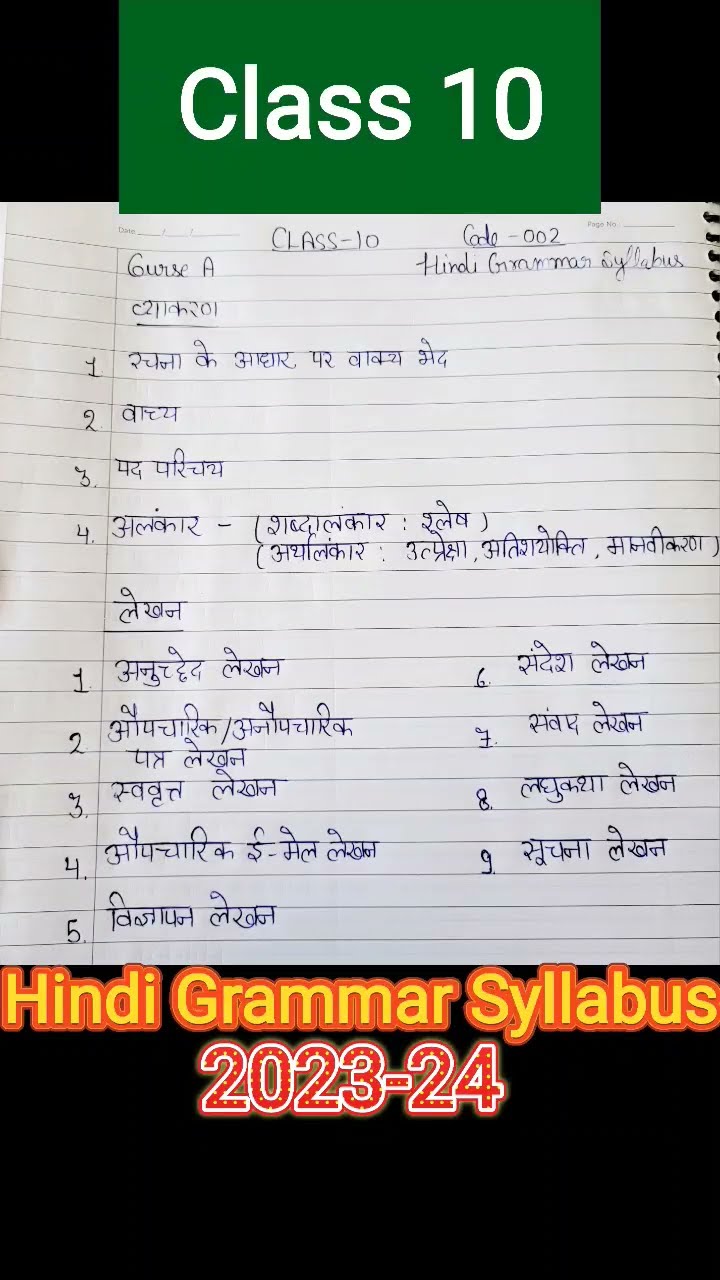 Class 10
Date / /
Page No.
CLASS-10 Code - 002
Course A Hindi Grammar Syllabus
व्याकरण
1 रचना के आधार पर वाक्य भेद
2. वाच्य
3. पद परिचय
4. अलंकार - (शब्दालंकार : श्लेष)
(अर्थालंकार : उत्प्रेक्षा, अतिशयोक्ति, मानवीकरण)
लेखन
1. अनुच्छेद लेखन
2. औपचारिक/अनौपचारिक
पत्र लेखन
3. स्ववृत्त लेखन
4. औपचारिक ई-मेल लेखन
5. विज्ञापन लेखन
6. संदेश लेखन
7. संवाद लेखन
8. लघुकथा लेखन
9. सूचना लेखन
Hindi Grammar Syllabus
2023-24